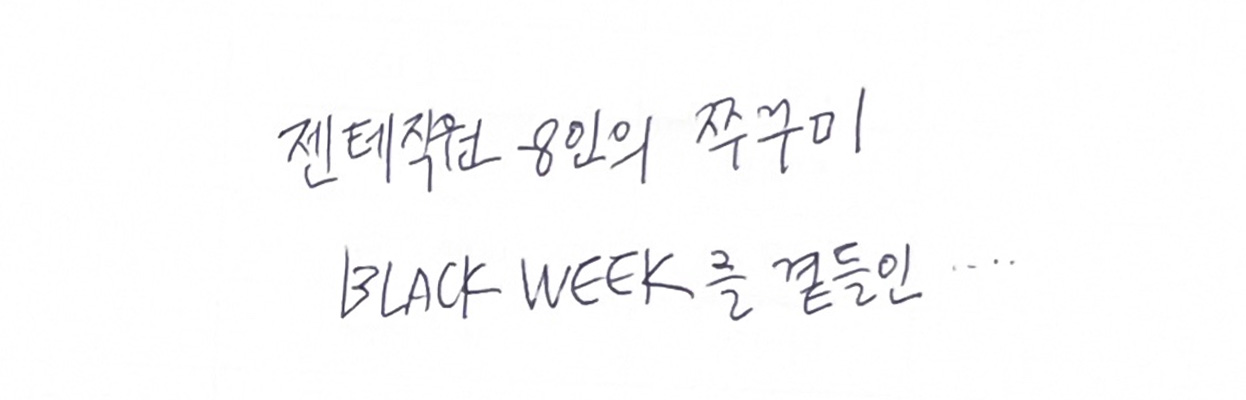 젠테직원 8인의 쭈꾸미
BLACK WEEK를 곁들인 ....